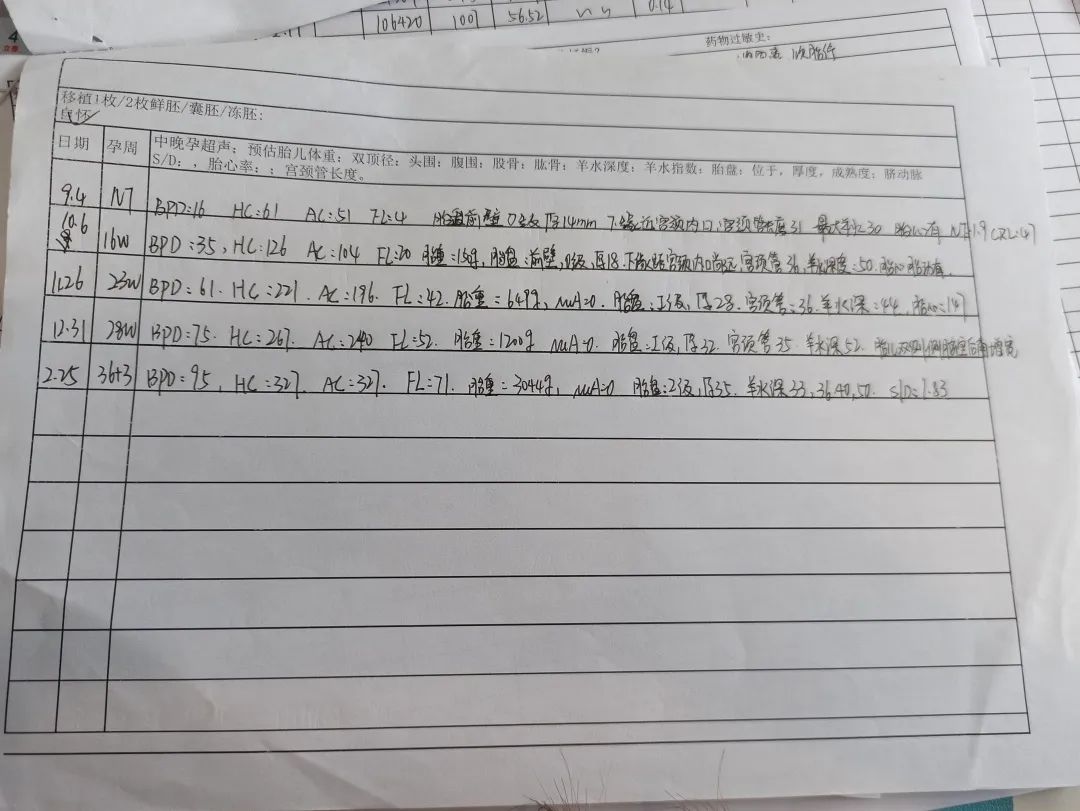 4
106420 1007 56.52 0.14
药物过敏史:
移植1枚/2枚鲜胚/囊胚/冻胚:
自怀
日期 孕周 中晚孕超声:预估胎儿体重:双顶径:头围:腹围:股骨:肱骨:羊水深度:羊水指数:胎盘:位于,厚度,成熟度:脐动脉
S/D: ,胎心率: ;宫颈管长度。
9.4 NT BPD=16 HC=61 AC=51 FL=4 胎盘前壁 0级 厚14mm 下缘近宫颈内口,宫颈管长度31 最大羊水30 胎心有 NT1.9 CRL=
10.6 16W BPD=35, HC=126 AC=104 FL=20 胎重=159g, 胎盘:前壁,0级,厚18. 下缘距宫颈内口尚远, 宫颈管36, 羊水深度=50. 胎心胎动有.
11.26 23W BPD=61. HC=221. AC=196. FL=42. 胎重=649g, MA=0. 胎盘:I级,厚28. 宫颈管:36. 羊水深:44, 胎心:147
12.31 28W BPD=75. HC=267. AC=240 FL=52. 胎重=1200g MA=0. 胎盘:I级,厚32. 宫颈管35. 羊水深52. 胎儿双侧侧脑室后角增宽
2.25 36+3 BPD=95, HC=327. AC=327. FL=71. 胎重=3044g, MA=0 胎盘:2级,厚35. 羊水深33,36,40,50. S/D=1.83